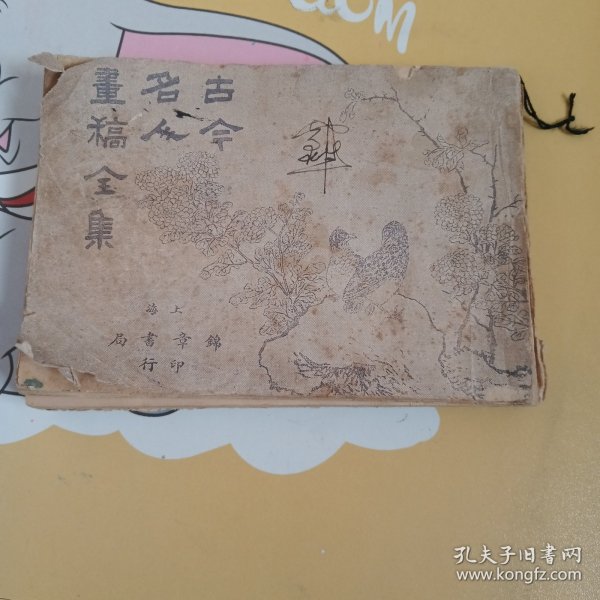 古今
名人
畫稿全集
上海
錦章書局
印行
孔夫子旧书网
www.kongfz.com